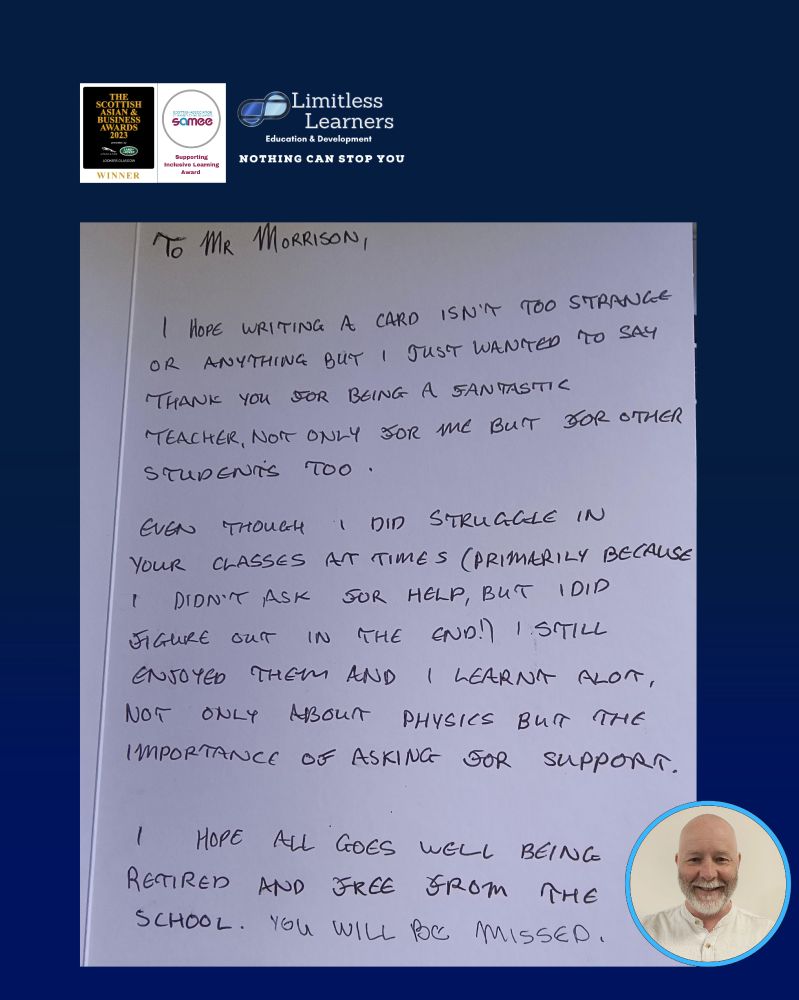 THE
SCOTTISH
ASIAN &
BUSINESS
AWARDS
2023
WINNER
samee
Supporting
Inclusive Learning
Award
Limitless
Learners
Education & Development
NOTHING CAN STOP YOU
TO MR MORRISON,
I HOPE WRITING A CARD ISN'T TOO STRANGE
OR ANYTHING BUT I JUST WANTED TO SAY
THANK YOU FOR BEING A FANTASTIC
TEACHER, NOT ONLY FOR ME BUT FOR OTHER
STUDENTS TOO.
EVEN THOUGH I DID STRUGGLE IN
YOUR CLASSES AT TIMES (PRIMARILY BECAUSE
I DIDN'T ASK FOR HELP, BUT I DID
FIGURE OUT IN THE END!) I STILL
ENJOYED THEM AND I LEARNT ALOT,
NOT ONLY ABOUT PHYSICS BUT THE
IMPORTANCE OF ASKING FOR SUPPORT.
I HOPE ALL GOES WELL BEING
RETIRED AND FREE FROM THE
SCHOOL. YOU WILL BE MISSED.